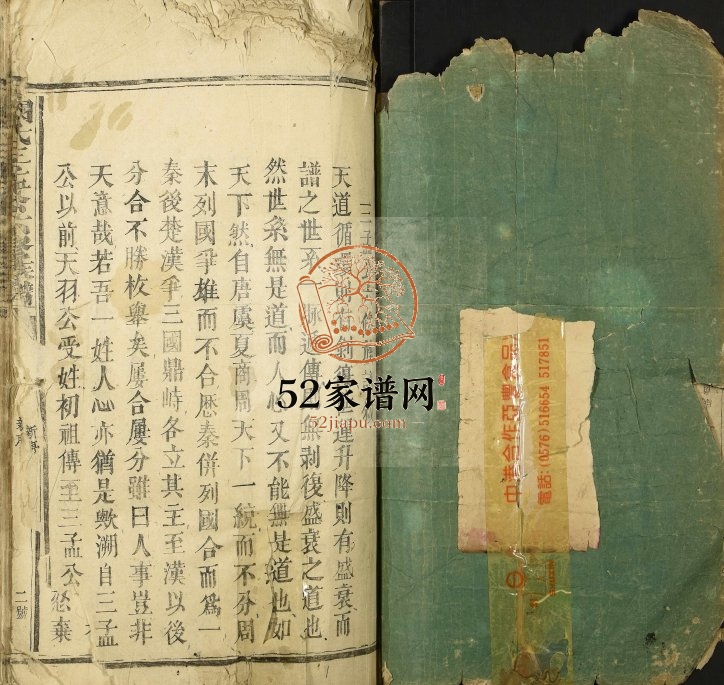 天道循運升降則有盛衰而
譜之世系無剥復盛衰之道也
然世系無是道而人心又不能無是道也如
天下然自唐虞夏商周天下一統而不分周
末列國爭雄而不合歴秦併列國合而爲一
秦後楚漢爭三國鼎峙各立其主至漢以後
分合不勝枚舉矣屢合屢分雖曰人事豈非
天意哉若吾一姓人心亦猶是歟溯自三孟
公以前天羽公受姓初祖傳至三孟公
二號
52家谱网
52jiapu.com
中港合作亞豐食品
電話:(0576)516654 517851